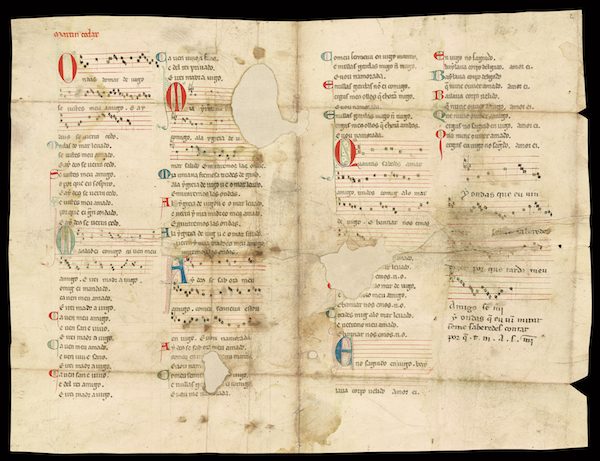 Martin codax
Ondas do mar de uigo
se uistes meu amigo. E ay
deus se uerra cedo.
Ondas do mar leuado.
se uistes meu amado.
E ay deus se uerra cedo.
Se uistes meu amigo.
o por que eu sospiro.
E ay deus se uerra cedo.
Se uistes meu amado.
por que ei gran
E ay deus se uerra cedo.
Mandad ei comigo ca uen meu
amigo. E irei madr a uigo
Comigo ei mandado.
ca uen meu amado.
E irei madr a uigo
Ca uen meu amigo.
e uen san e uiuo.
E irei madr a uigo
Ca uen meu amado.
e uen uiu e sano.
E irei madr a uigo
Ca uen san e uiuo.
e del rei amigo.
E irei madr a uigo.
Ca uen uiu e sano.
e del rei priuado.
E irei madr a uigo.
Mia yrmana
comigo. a la ygreia de
mar salido E miraremos las ondas.
Mia yrmana fremosa treides de grado.
a la ygreia de uigo u e o mar leuado.
E miraremos las ondas.
A la ygreia de uigo u e o mar leuado.
e uerra y mia madre o meu amado.
E miraremos las ondas.
A la ygreia de uigo u e o mar salido.
e uerra y mia madre o meu amigo.
E miraremos las ondas.
Ay deus se sab ora meu
amigo. com eu senneira estou
en uigo. E uou namorada.
Ay deus se sab ora meu amado.
com eu senneira
E uou namorada.
Com eu senneira
e nullas gardas
E uou me namorada.
Com eu senneira en uigo manno.
e nullas gardas migo non trago.
E uou namorada.
E nullas gardas non ei comigo.
ergas meus ollos que choran migo.
E uou namorada.
E nullas gardas migo non trago.
ergas meus ollos que choran ambos.
E uou namorada.
Quantas sabedes amar
amigo. treides comig a lo mar
de uigo. E bannar nos emos
leuado.
E bannar nos emos n.o.
a lo mar de uigo.
e ueeremo lo meu amigo.
E bannar nos emos n.o.
Treides mig a lo mar leuado.
e ueeremo meu amado.
E bannar nos emos n.o.
Eno sagrado en uigo. bay
laua corpo uelido amor ei.
En uigo no sagrado.
baylaua corpo delgado. amor ei.
Baylaua corpo delgado
que nunc ouuer amado. amor ei.
Bailaua corpo uelido.
que nunc ouuer amigo. amor ei.
Que nunc ouuer amigo.
ergas no sagrad en uigo. amor ei.
Que nunc ouuer amado.
ergas en uigo no sagrado. amor ei.
y ondas que eu uin
saberedes
por que tarda meu
amigo se
y ondas que eu uin mirar
se me saberedes contar
por que t. m. a. s.